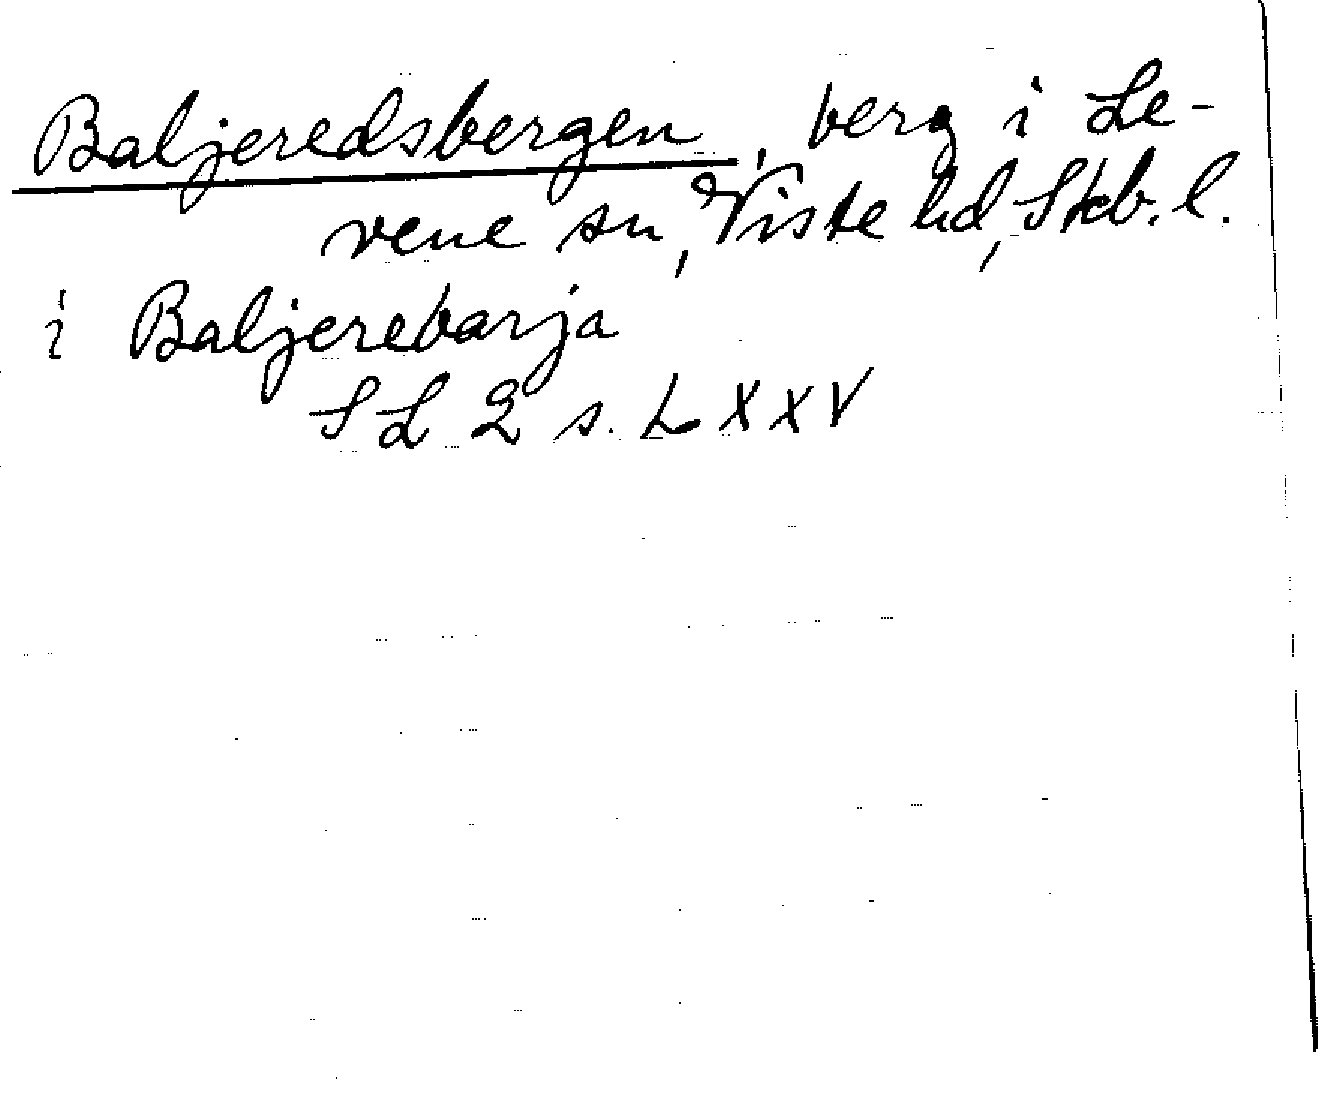 Baljeredsbergen, berg i Le-
vene sn, Viste hd, Skb. l.
i Baljerebarja
SL 2 s. LXXV